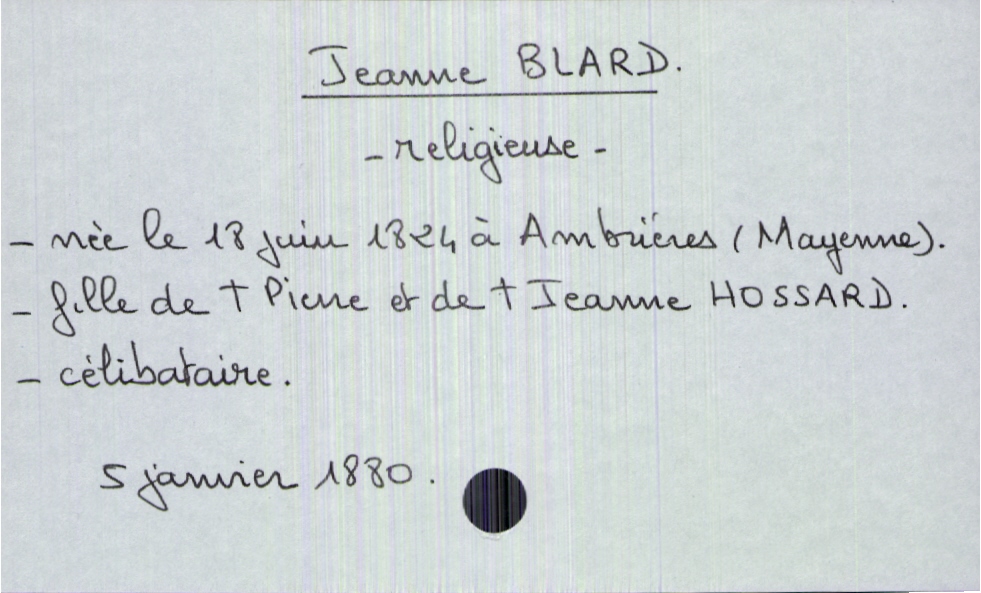 Jeanne BLARD.
- religieuse -
- née le 18 juin 1824 à Ambrières (Mayenne).
- fille de † Pierre et de † Jeanne HOSSARD.
- célibataire.
5 janvier 1880.